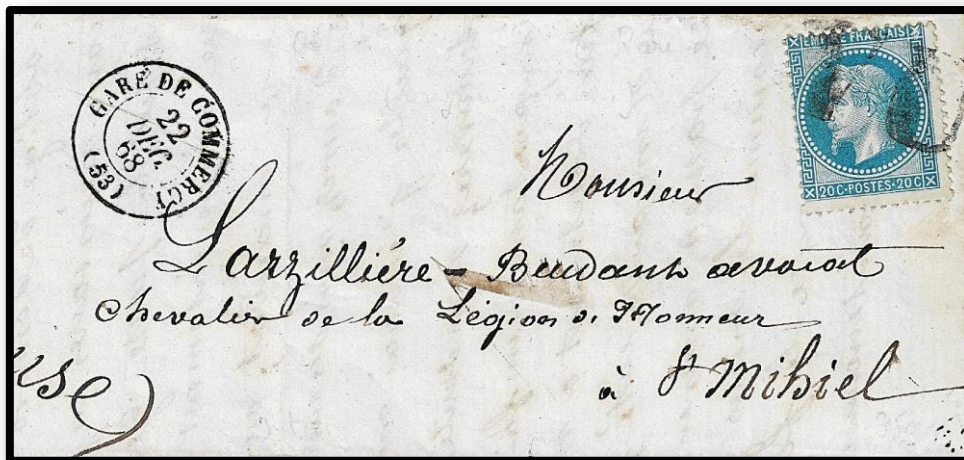 GARE DE COMMERCY
22
DEC.
68
(53)
EMPIRE FRANÇAIS
20C·POSTES·20C
Monsieur
Larzillière - Beudant avocat
Chevalier de la Légion d'Honneur
à St Mihiel
use